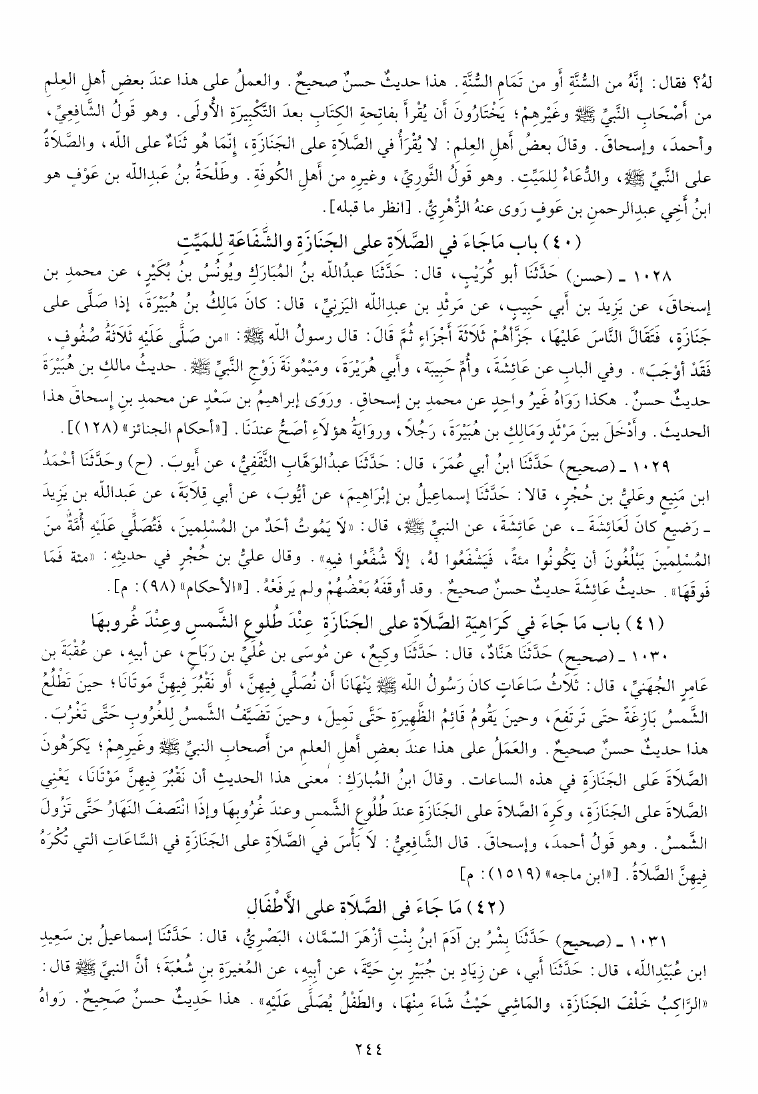 لهُ؟ فقال: إنَّهُ من السُّنَّةِ أَو من تَمَامِ السُّنَّةِ. هذا حديثٌ حسنٌ صحيحٌ. والعملُ على هذا عندَ بعضِ أهلِ العِلمِ
من أَصْحَابِ النَّبيِّ ﷺ وغَيْرِهِمْ؛ يَخْتَارُونَ أَن يُقْرَأَ بِفَاتحةِ الكِتَابِ بعدَ التَّكْبِيرَةِ الأُولَى. وهو قَولُ الشَّافِعيِّ،
وأحمدَ، وإسحاقَ. وقالَ بعضُ أهلِ العِلمِ: لا يُقْرَأُ في الصَّلاةِ على الجَنَازَةِ، إِنَّمَا هُو ثَنَاءٌ على الله، والصَّلاةُ
على النَّبيِّ ﷺ، والدُّعَاءُ للمَيِّتِ. وهو قَولُ الثَّوريِّ، وغيرِهِ من أهلِ الكُوفَةِ. وطَلْحَةُ بنُ عَبدِالله بن عَوْفٍ هو
ابنُ أَخِي عبدِالرحمنِ بن عَوفٍ رَوى عنهُ الزُّهْرِيُّ. [انظر ما قبله].
(٤٠) باب مَاجَاءَ في الصَّلاةِ على الجَنَازَةِ والشَّفَاعَةِ لِلمَيِّتِ
١٠٢٨ ـ (حسن) حَدَّثَنَا أبو كُرَيْبٍ، قال: حَدَّثَنَا عبدُالله بنُ المُبَارَكِ ويُونُسُ بنُ بُكَيْرٍ، عن محمدِ بن
إسحاقَ، عن يَزِيدَ بن أَبي حَبِيبٍ، عن مَرْثَدِ بن عبدِالله اليَزنِيِّ، قال: كانَ مَالِكُ بنُ هُبَيْرَةَ، إذا صَلَّى على
جَنَازَةٍ، فَتَقَالَّ النَّاسَ عَلَيْهَا، جَزَّأَهُمْ ثَلاَثَةَ أَجْزَاءٍ ثُمَّ قَالَ: قال رسولُ الله ﷺ: «من صَلَّى عَلَيْهِ ثَلاَثَةُ صُفُوفٍ،
فَقَدْ أَوْجَبَ». وفي البابِ عن عَائِشَةَ، وأُمِّ حَبِيبَة، وأَبي هُرَيْرَةَ، ومَيْمُونَةَ زَوْجِ النَّبيِّ ﷺ. حديثُ مالكِ بن هُبَيْرَةَ
حديثٌ حسنٌ. هكذا رَوَاهُ غَيرُ واحِدٍ عن محمدِ بن إسحاق. ورَوَى إبراهيمُ بن سَعْدٍ عن محمدِ بنِ إسحاقَ هذا
الحديثَ. وأَدْخَلَ بينَ مَرْثَدٍ وَمَالِكِ بن هُبَيْرَةَ، رَجُلًا، وروايةُ هؤلاءِ أَصَحُّ عندَنَا. [«أحكام الجنائز» (١٢٨)].
١٠٢٩ ـ (صحيح) حَدَّثَنَا ابنُ أبي عُمَرَ، قال: حَدَّثَنَا عبدُالوَهَّابِ الثَّقَفِيُّ، عن أيوبَ. (ح) وحَدَّثَنَا أَحْمَدُ
ابن مَنِيعٍ وعَليُّ بن حُجْرٍ، قالا: حَدَّثَنَا إسماعيلُ بن إبْرَاهِيمَ، عن أَيُّوبَ، عن أبي قِلاَبَةَ، عن عبدالله بن يَزِيدَ
ـ رَضيعٍ كانَ لعَائشَةَ ـ، عن عَائشَةَ، عن النبيِّ ﷺ، قال: «لا يَمُوتُ أحدٌ من المُسْلمينَ، فَتُصَلِّي عَلَيْهِ أُمَّةٌ منَ
المُسْلِمينَ يَبْلُغُونَ أن يَكُونُوا مئةً، فَيَشْفَعُوا لهُ، إلَّا شُفِّعُوا فيهِ». وقال عليُّ بن حُجْرٍ في حديثِهِ: «مئة فَمَا
فَوقَهَا». حديثُ عائشةَ حديثٌ حسنٌ صحيحٌ. وقد أوقَفَهُ بَعْضُهُمْ ولم يَرفَعْهُ. [«الأحكام» (٩٨): م].
(٤١) باب مَا جَاءَ في كَرَاهِيَةِ الصَّلاةِ على الجَنَازَةِ عِنْدَ طُلوعِ الشَّمسِ وعِنْدَ غُروبِهَا
١٠٣٠ ـ (صحيح) حَدَّثَنَا هَنَّادٌ، قال: حَدَّثَنَا وكيعٌ، عن مُوسَى بن عُلَيِّ بن رَبَاحٍ، عن أبيهِ، عن عُقْبَةَ بن
عَامِرٍ الجُهَنيِّ، قال: ثَلاَثُ سَاعَاتٍ كانَ رَسُولُ الله ﷺ يَنْهَانَا أن نُصَلِّيَ فيهِنَّ، أَو نَقْبُرَ فِيهِنَّ مَوتَانَا؛ حينَ تَطْلُعُ
الشَّمسُ بَازِغَةً حتى تَرتَفعَ، وحينَ يَقُومُ قَائِمُ الظَّهيرَةِ حَتَّى تَمِيلَ، وحينَ تَضَيَّفُ الشَّمسُ لِلغُرُوبِ حَتَّى تَغْرُبَ.
هذا حديثٌ حسنٌ صحيحٌ. والعَمَلُ على هذا عندَ بعضِ أهلِ العلمِ من أصحابِ النبيِّ ﷺ وغَيرِهِمْ؛ يَكرَهُونَ
الصَّلاَةَ عَلى الجَنَازَةِ في هذه الساعات. وقالَ ابنُ المُبارَكِ: معنى هذا الحديثِ أن نَقْبُرَ فيهِنَّ مَوْتَانَا، يَعْنِي
الصَّلاةَ على الجَنَازَةِ، وكَرِهَ الصَّلاةَ على الجَنَازَةِ عندَ طُلُوعِ الشَّمسِ وعندَ غُرُوبِهَا وإذَا انْتَصفَ النَهَارُ حَتَّى تَزُولَ
الشَّمسُ. وهو قَولُ أحمدَ، وإسحاقَ. قال الشَّافِعيُّ: لاَ بَأْسَ في الصَّلاةِ على الجَنَازَةِ في السَّاعَاتِ التي تُكْرَهُ
فِيهِنَّ الصَّلاةُ. [«ابن ماجه» (١٥١٩): م]
(٤٢) مَا جَاءَ في الصَّلاةِ على الأَطْفَالِ
١٠٣١ ـ (صحيح) حَدَّثَنَا بِشْرُ بن آدَمَ ابنُ بِنْتِ أَزْهَرَ السَّمَّان، البَصْرِيُّ، قال: حَدَّثَنَا إسماعيلُ بن سَعِيدِ
ابن عُبَيْدِالله، قال: حَدَّثَنَا أَبي، عن زِيَادِ بن جُبَيْرِ بن حَيَّةَ، عن أبيهِ، عن المُغيرَةِ بنِ شُعْبَةَ؛ أنَّ النبيَّ ﷺ قال:
«الرَّاكِبُ خَلْفَ الجَنَازَةِ، والمَاشِي حَيْثُ شَاءَ مِنْهَا، والطِّفْلُ يُصَلَّى عَلَيْهِ». هذا حَدِيثٌ حسنٌ صَحِيحٌ. رَواهُ
٢٤٤